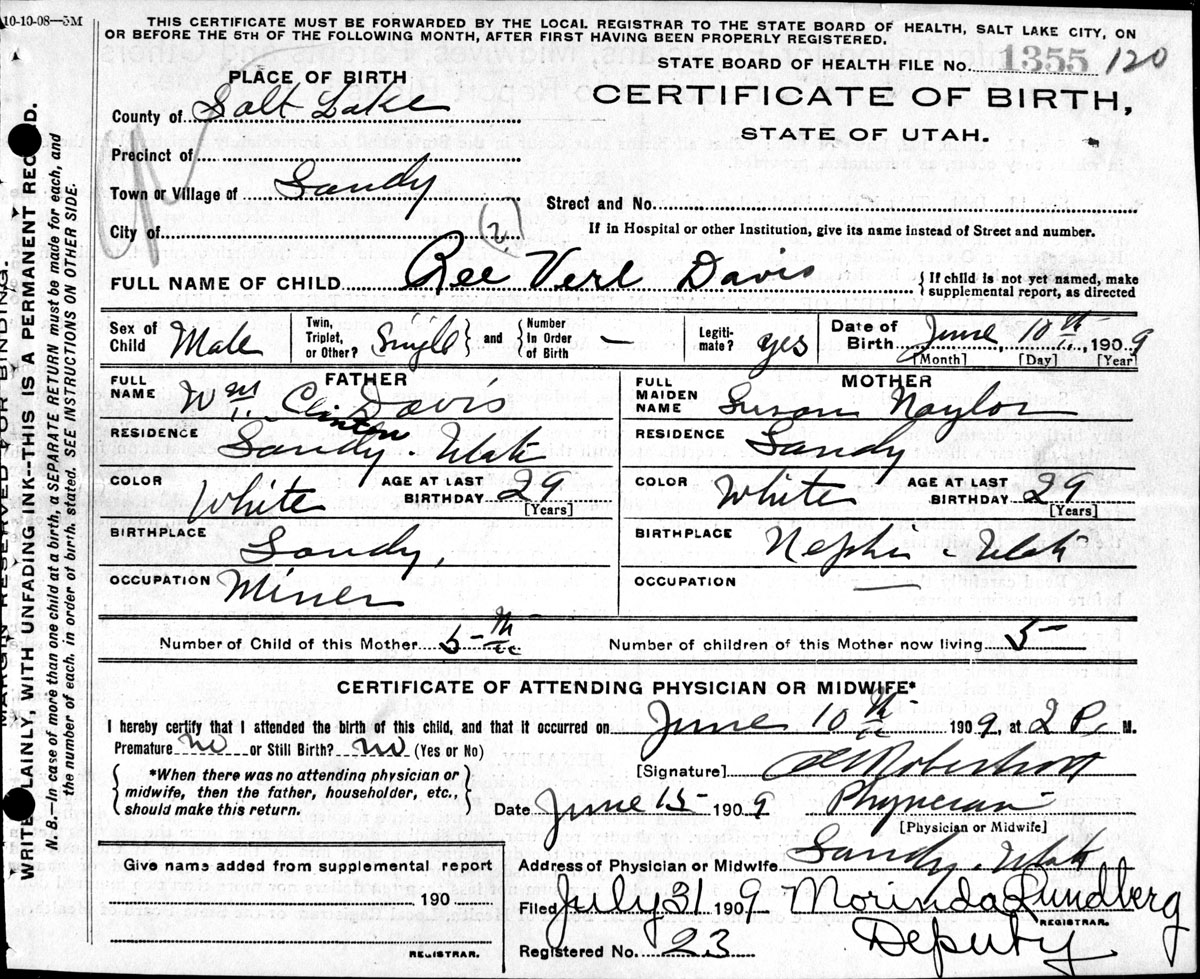 10-10-08—5M
THIS CERTIFICATE MUST BE FORWARDED BY THE LOCAL REGISTRAR TO THE STATE BOARD OF HEALTH, SALT LAKE CITY, ON
OR BEFORE THE 5TH OF THE FOLLOWING MONTH, AFTER FIRST HAVING BEEN PROPERLY REGISTERED.
STATE BOARD OF HEALTH FILE NO. 1355 120
PLACE OF BIRTH
CERTIFICATE OF BIRTH,
STATE OF UTAH.
County of Salt Lake
Precinct of
Town or Village of Sandy
Street and No.
City of (2)
If in Hospital or other Institution, give its name instead of Street and number.
FULL NAME OF CHILD Ree Verl Davis { If child is not yet named, make supplemental report, as directed
Sex of Child Male Twin, Triplet, or Other? Single } and { Number in Order of Birth — Legiti-mate? yes Date of Birth June, 10th, 1909
[Month] [Day] [Year]
FATHER
FULL NAME Wm Clinton Davis
RESIDENCE Sandy. Utah
COLOR White AGE AT LAST BIRTHDAY 29 [Years]
BIRTHPLACE Sandy,
OCCUPATION Miner
MOTHER
FULL MAIDEN NAME Susan Naylor
RESIDENCE Sandy
COLOR White AGE AT LAST BIRTHDAY 29 [Years]
BIRTHPLACE Nephi - Utah
OCCUPATION —
Number of Child of this Mother 5th Number of children of this Mother now living 5
CERTIFICATE OF ATTENDING PHYSICIAN OR MIDWIFE*
I hereby certify that I attended the birth of this child, and that it occurred on June 10th 1909, at 2 P. M.
Premature no or Still Birth? no (Yes or No)
{ *When there was no attending physician or midwife, then the father, householder, etc., should make this return. }
[Signature] Robertson
Date June 15 1909 Physician
[Physician or Midwife]
Give name added from supplemental report
190
REGISTRAR.
Address of Physician or Midwife Sandy. Utah
Filed July 31 1909 Morinda Lundberg
REGISTRAR.
Deputy
Registered No. 23
MARGIN RESERVED FOR BINDING.
WRITE PLAINLY, WITH UNFADING INK--THIS IS A PERMANENT RECORD.
N. B.—In case of more than one child at birth, a SEPARATE RETURN must be made for each, and
the number of each, in order of birth, stated. SEE INSTRUCTIONS ON OTHER SIDE.